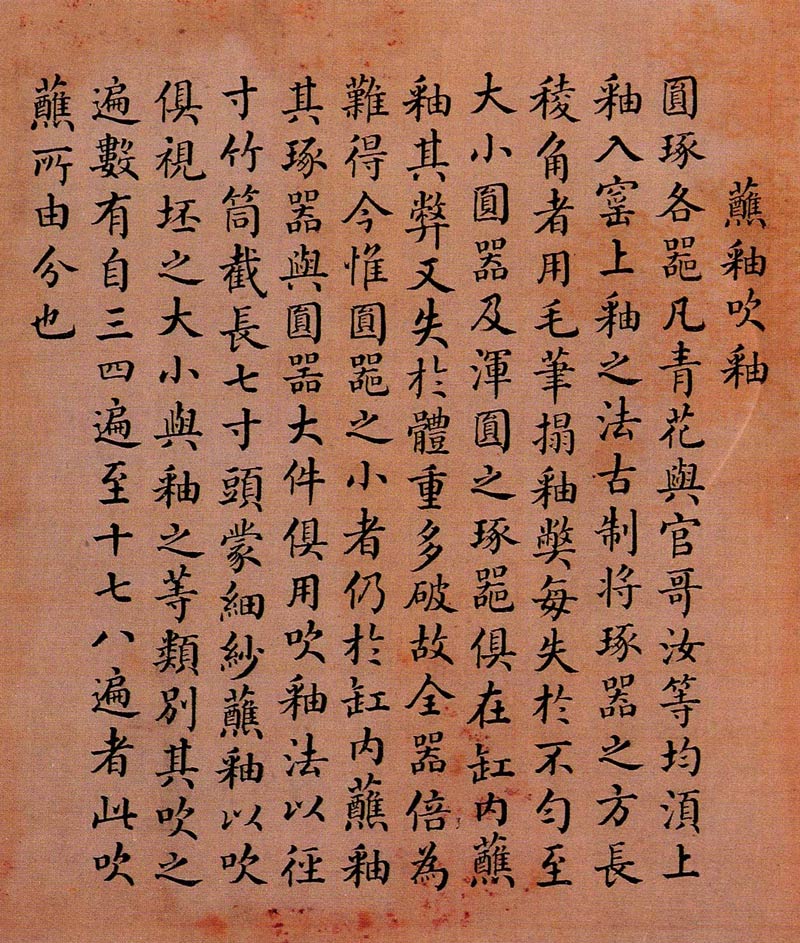 蘸釉吹釉
圓琢各器凡青花與官哥汝等均須上
釉入窑上釉之法古制將琢器之方長
稜角者用毛筆搨釉弊每失於不勻至
大小圓器及渾圓之琢器俱在缸內蘸
釉其弊又失於體重多破故全器倍為
難得今惟圓器之小者仍於缸內蘸釉
其琢器與圓器大件俱用吹釉法以徑
寸竹筒截長七寸頭蒙細紗蘸釉以吹
俱視坯之大小與釉之等類別其吹之
遍數有自三四遍至十七八遍者此吹
蘸所由分也